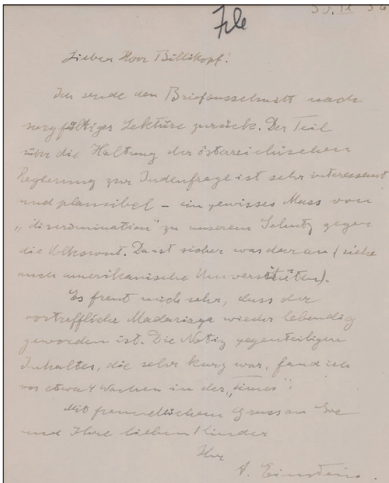 File
Lieber Herr Billikopf!
Ich sende den Briefausschnitt nach
sorgfältiger Lektüre zurück. Der Teil
über die Haltung der österreichischen
Regierung zur Judenfrage ist sehr interessant
und plausibel – ein gewisses Mass von
„discrimination" zu unserem Schutz gegen
die Volkswut. Da ist sicher was daran (siehe
auch amerikanische Universitäten).
Es freut mich sehr, dass der
vortreffliche Madariaga wieder lebendig
geworden ist. Die Notiz gegenteiligen
Inhaltes, die sehr kurz war, fand ich
vor etwa 4 Wochen in der „Times".
Mit freundlichem Gruss an Sie
und Ihre lieben Kinder
Ihr
A. Einstein.